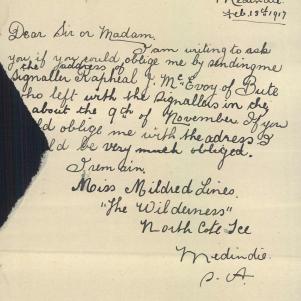 Medindie.
Feb. 13th 1917
Dear Sir or Madam.
I am writing to ask
you if you would oblige me by sending me
the address of
Signaller Rapheal J. McEvoy of Bute
who left with the Signallers in the
about the 9th of November. If you
oblige me with the adress I
be very much obliged.
I remain.
Miss Mildred Lines.
"The Wilderness"
North Cote Tce
Medindie.
S. A.